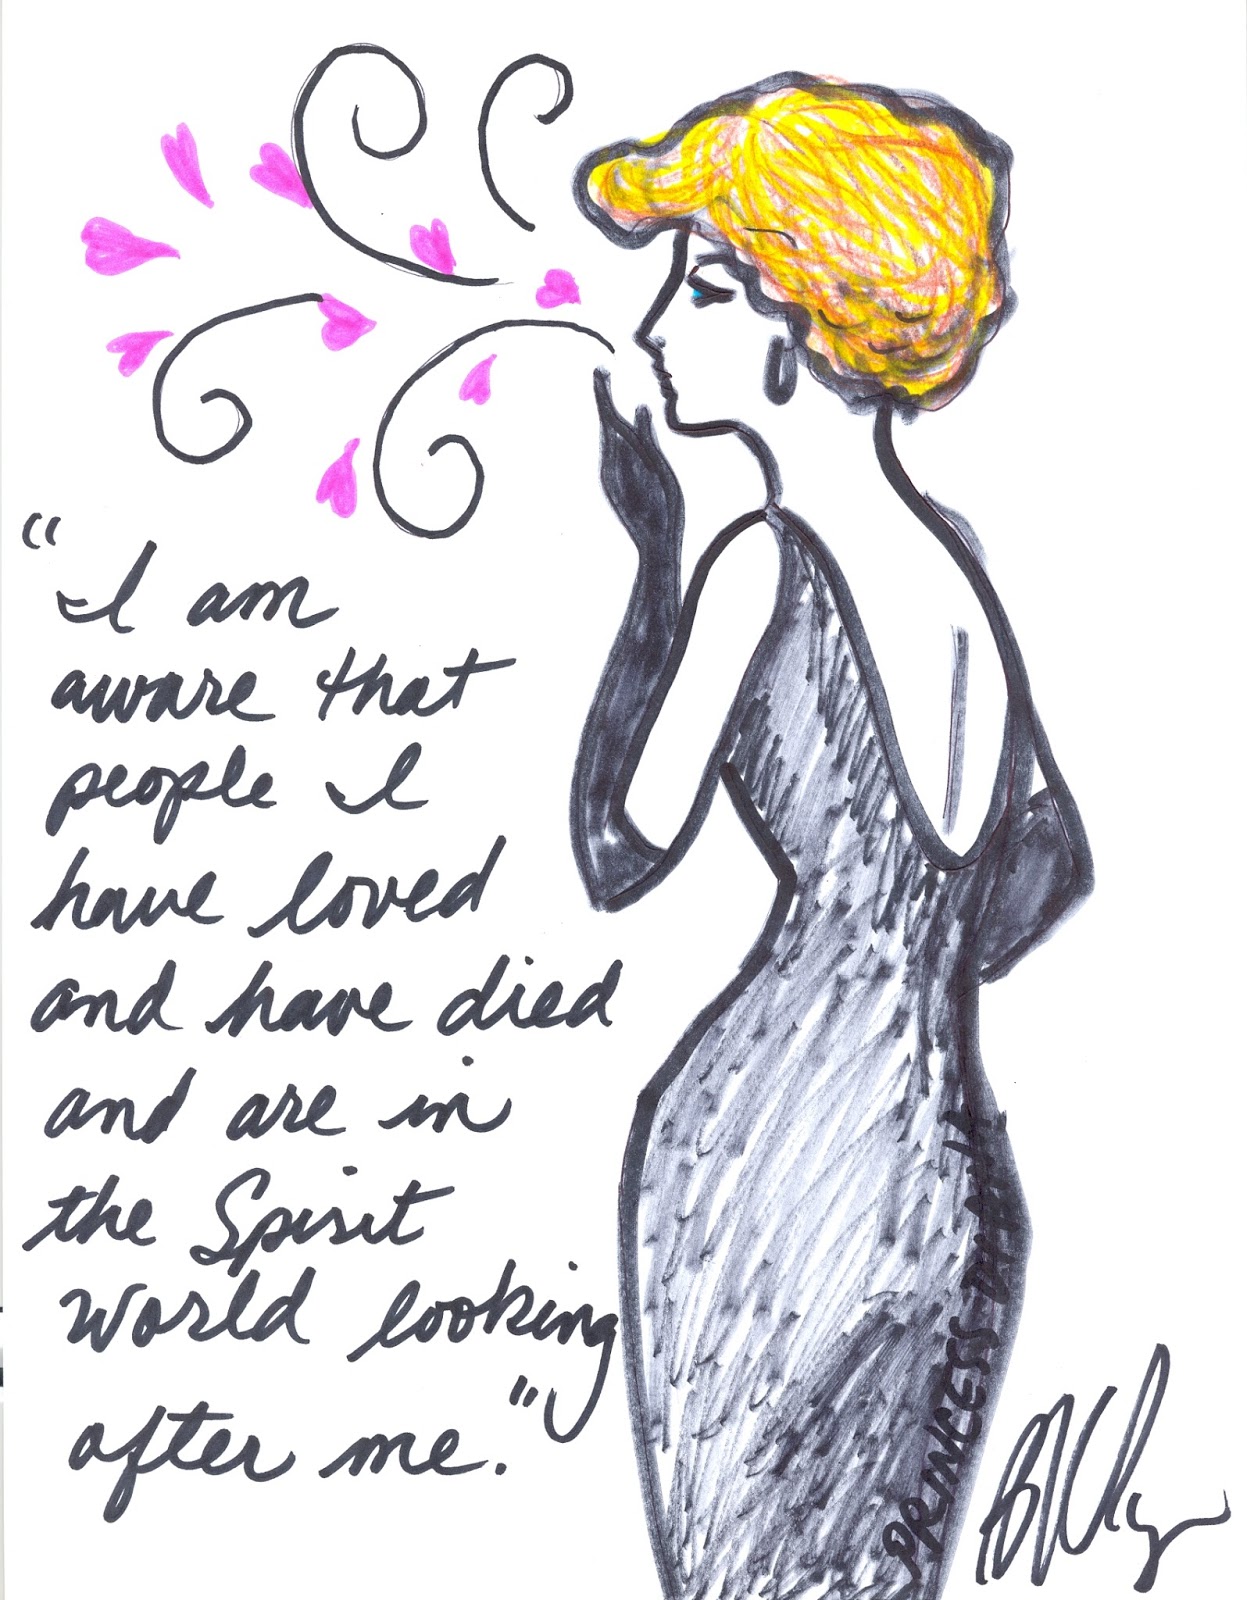 "I am
aware that
people I
have loved
and have died
and are in
the Spirit
World looking
after me."
PRINCESS DIANA